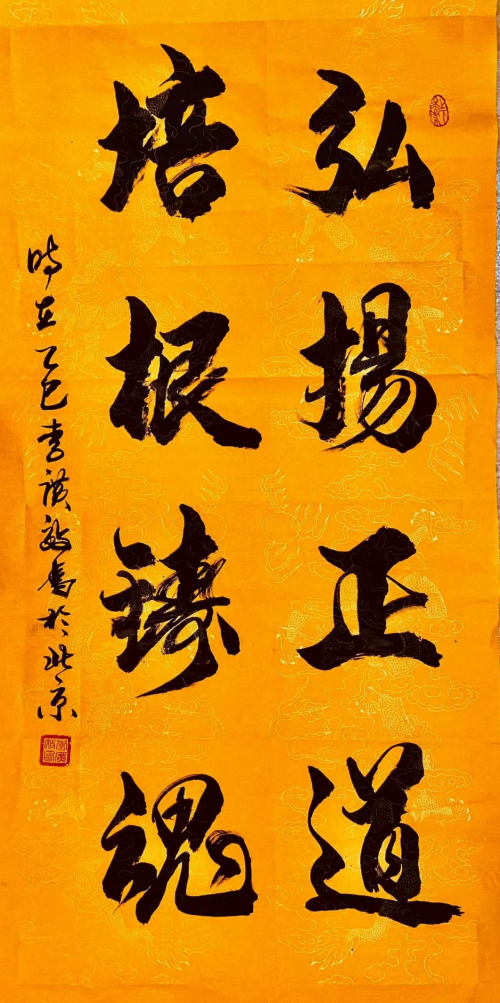 弘揚正道
培根鑄魂
時在乙巳李謨啟書於北京